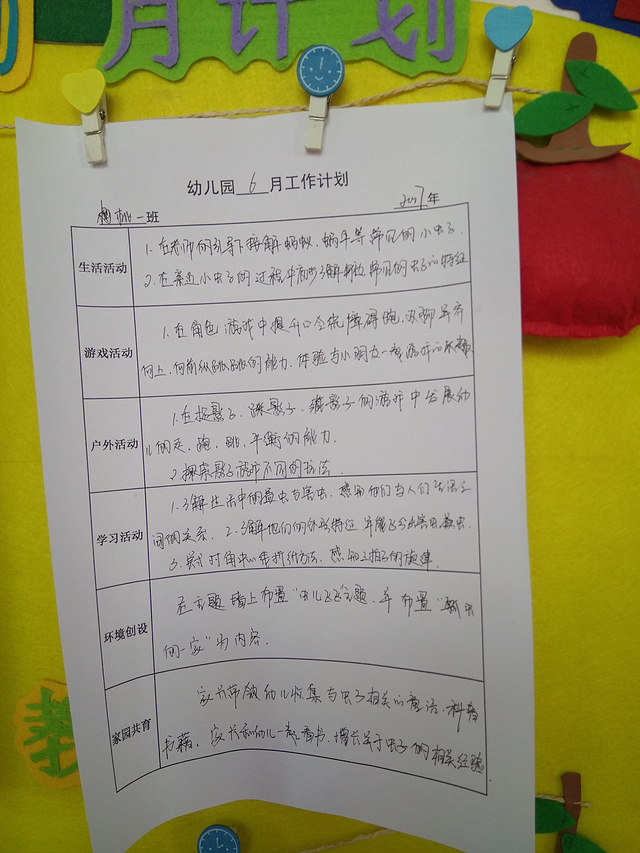 月计划
幼儿园 6 月工作计划
樱桃一班 2017年
生活活动
1. 在老师的引导下接触蚂蚁、蜗牛等常见的小虫子.
2. 在亲近小虫子的过程中初步了解 常见的虫子的特征
游戏活动
1. 在角色游戏中提升口令统障碍跑、双脚并齐
向上、向前纵跳 的能力、体验与小朋友一起游戏的
户外活动
1. 在捉影子、踩影子、藏影子的游戏中发展幼
儿的走、跑、跳、平衡的能力.
2. 探索影子游戏不同的玩法.
学习活动
1. 了解生活中的益虫与害虫、感知他们与人们生活之
间的关系. 2. 了解他们的外形特征 并能区分害虫益虫.
3. 尝试对角 折纸方法. 感知二拍子的旋律.
环境创设
在主题墙上布置“虫儿飞飞”主题. 并布置“瓢虫
的一家”为内容.
家园共育
家长带领幼儿收集与虫子相关的童话、科普
书籍. 家长和幼儿一起看书、增长关于虫子的相关经验.